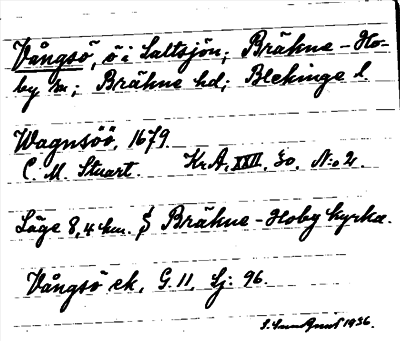 Vångsö, ö i Saltsjön; Bräkne-Ho-
by sn; Bräkne hd; Blekinge l.
Wagnsöö, 1679.
C. M. Stuart. Kr.A., XXII, 30, N:o 2.
Läge 8,4 km. S Bräkne-Hoby kyrka.
Vångsö ek, G. 11, Sj: 96.
1936.